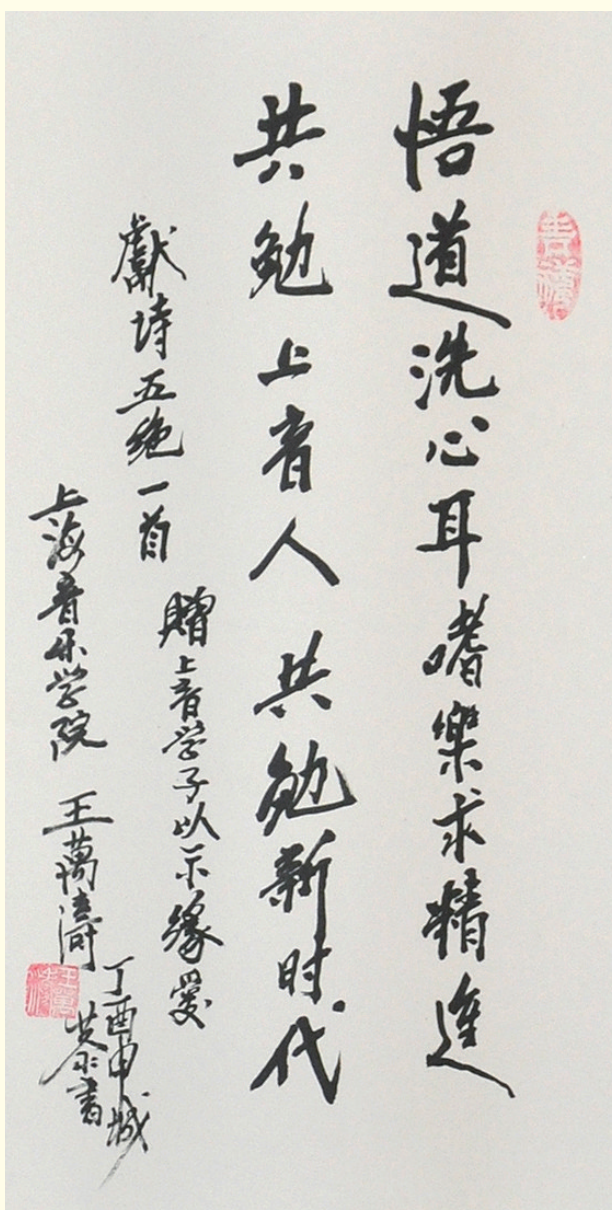 悟道洗心耳嗜樂求精進
共勉上音人共勉新时代
獻诗五绝一首
贈上音学子以示缘爱
上海音乐学院 王萬涛
丁酉申城
恭书